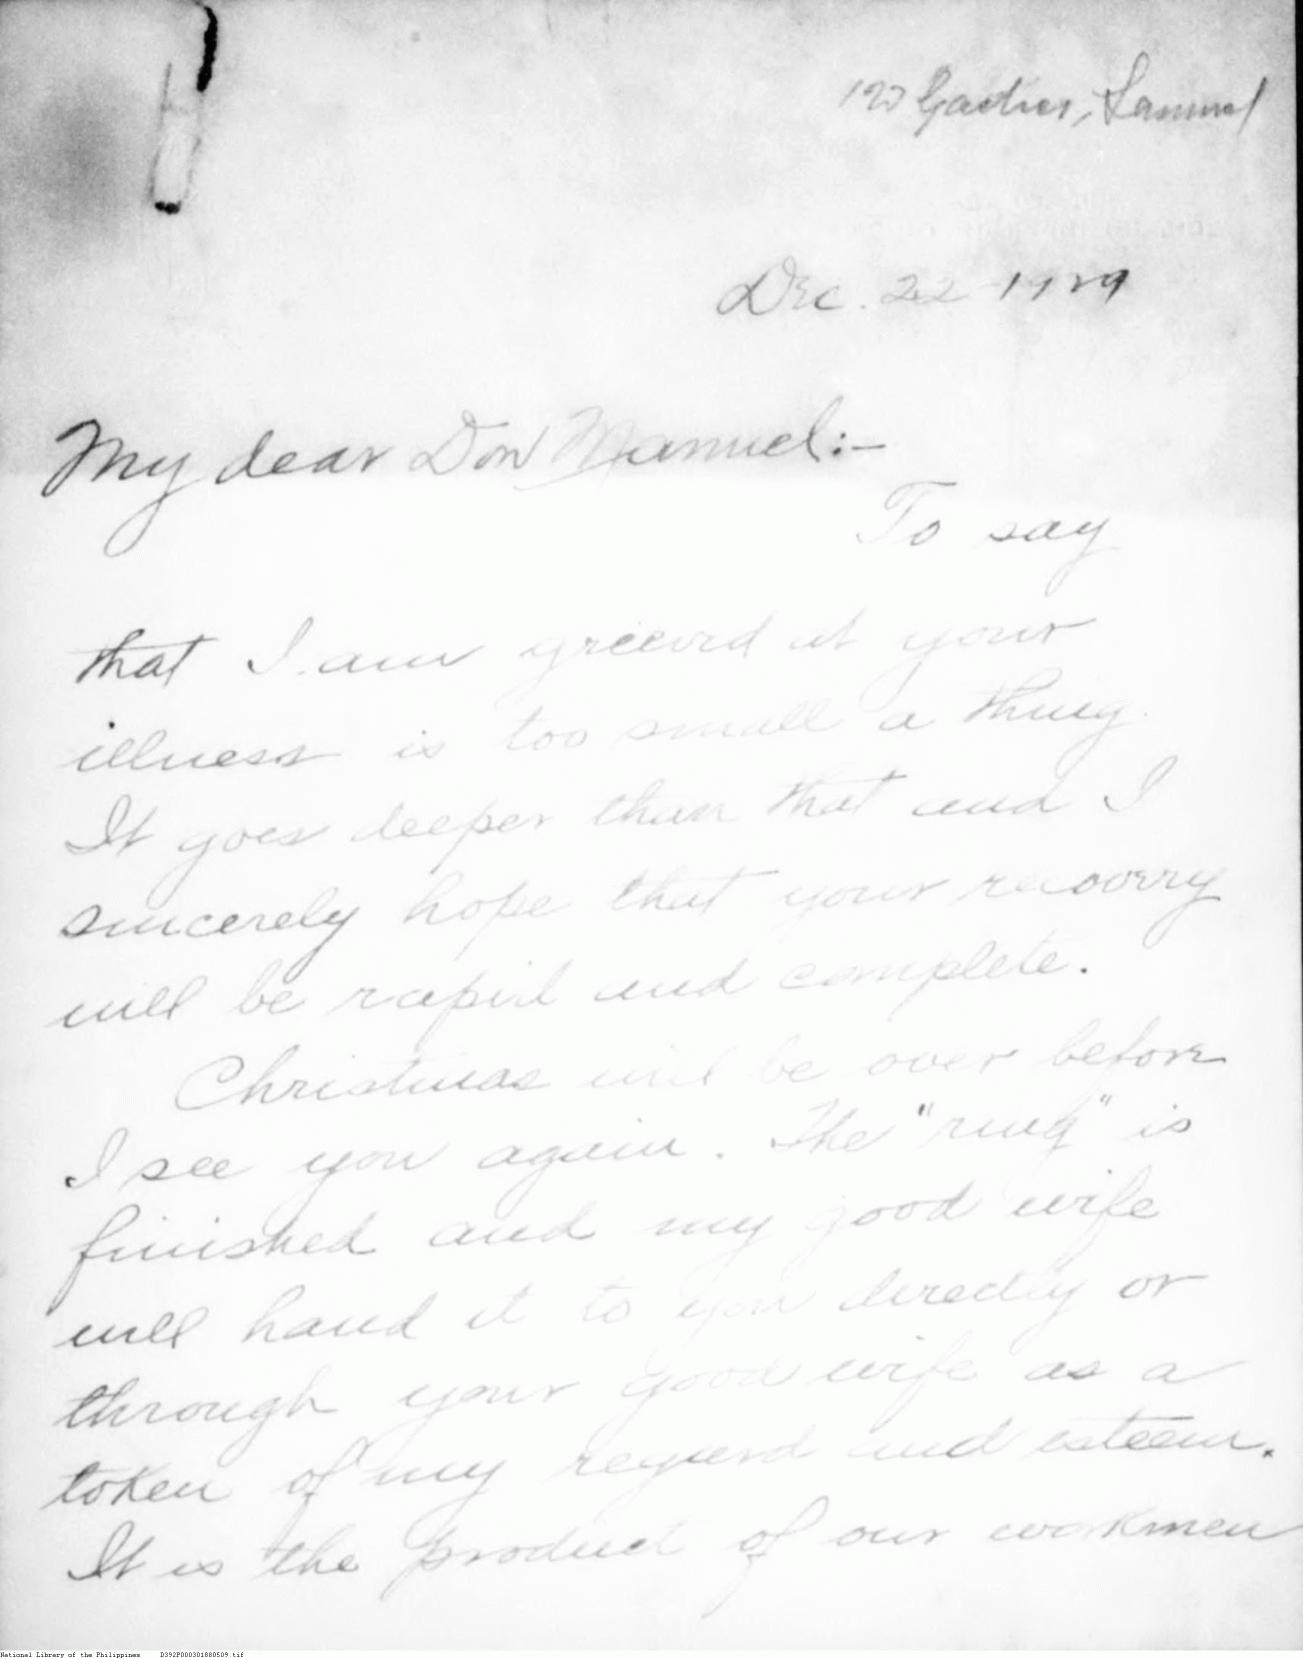 Gaches, Samuel
Dec. 22 1929
My dear Don Manuel:-
To say
that I am greeved at your
illness is too small a thing.
It goes deeper than that and I
sincerely hope that your recovery
will be rapid and complete.
Christmas will be over before
I see you again. The "ring" is
finished and my good wife
will hand it to you directly or
through your good wife as a
token of my regard and esteem.
It is the product of our workmen
National Library of the Philippines D392P000301880509.tif